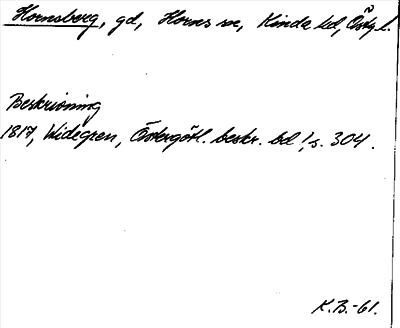 Hornsberg, gd, Horns sn, Kinda hd, Östg. l.
Beskrivning
1817, Widegren, Östergötl. beskr. bd 1, s. 304.
K.B.-61.